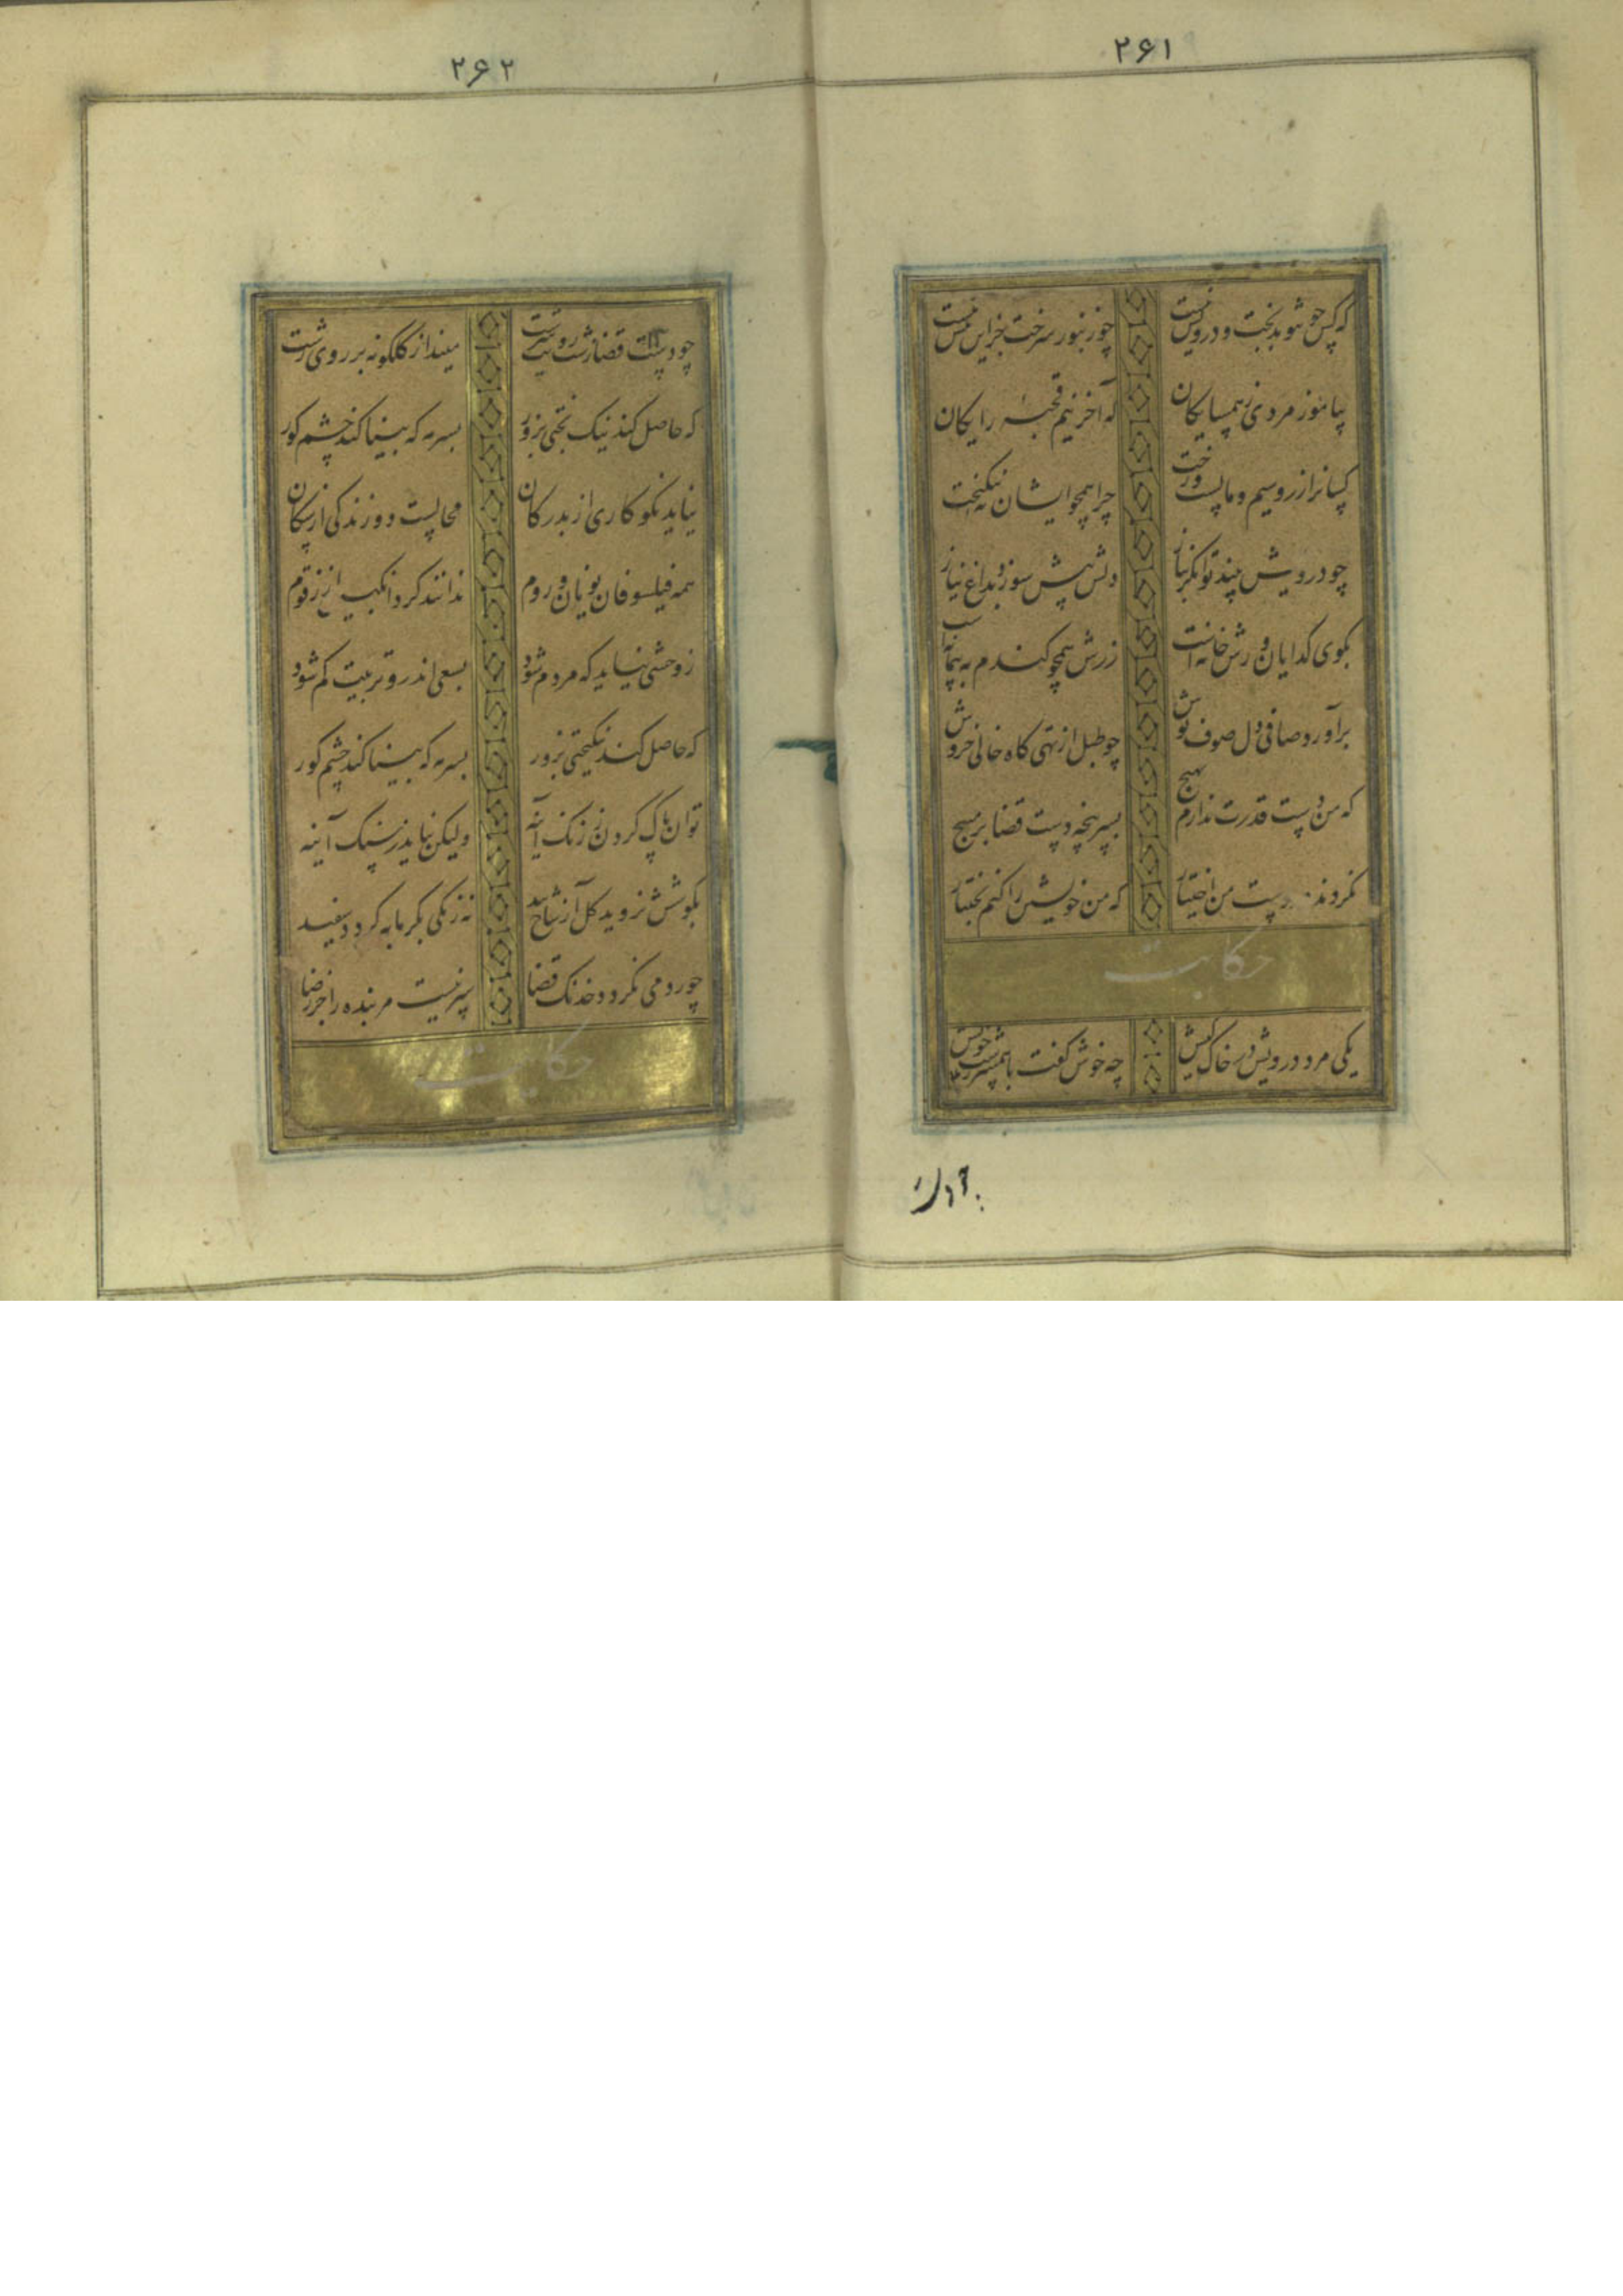 ۲۶۱
که کس چو تو بدبخت و درویش نیست چو زنبور سرخت جز این نیش نیست
بیاموز مردی ز همسایکان که آخر نیم قحبه رایکان
کسانرا زر و سیم و ماست و رخت چرا همچو ایشان نه نیکبخت
چو درویش بیند توانکر بناز دلش بیش سوزد بداغ نیاز
زرش همچو کندم به پیمانه
برآورد صافی دل صوف پوش چو طبل از تهی کاه خالی خروش
که من دست قدرت ندارم بهیچ بسرپنجه دست قضا بر مپیچ
نکردند در دست من اختیار که من خویشتن را کنم بختیار
حکایت
یکی مرد درویش در خاک کیش چه خوش کفت با همسر زشت خویش
۲۶۲
چو دست قضا زشت رویت سرشت میندار کلکونه بر روی زشت
که حاصل کند نیک بختی بزور بسرمه که بینا کند چشم کور
نیاید نکو کاری از بدرکان محالست دوزندکی از سکان
همه فیلسوفان یونان و روم ندانند کرد انکبین از زقوم
ز وحشی نیاید که مردم شود بسعی اندرو تربیت کم شود
که حاصل کند نیکبختی بزور بسرمه که بینا کند چشم کور
توان پاک کردن ز زنک آینه ولیکن نیاید ز سنک آینه
بکوشش نروید کل از شاخ بید نه زنکی بکرمابه کردد سفید
چو رد می نکردد خدنک قضا سپر نیست مر بنده را جز رضا
حکایت